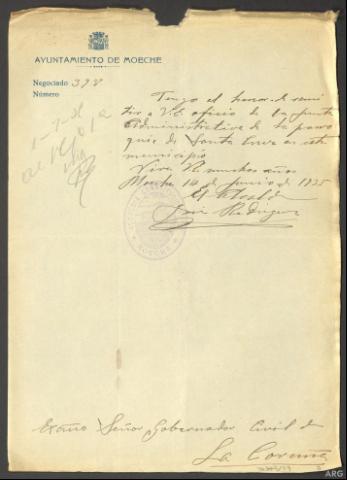 AYUNTAMIENTO DE MOECHE
Negociado 398
Número
Tengo el honor de remi
tir a V.E. oficio de la Junta
Administrativa de la parro
quia de Santa Cruz en este
municipio
Viva V.E. muchos años
Moeche 14 de Junio de 1935
El Alcalde
José Rodriguez
Excmo Señor Gobernador Civil de
La Coruña
ARG